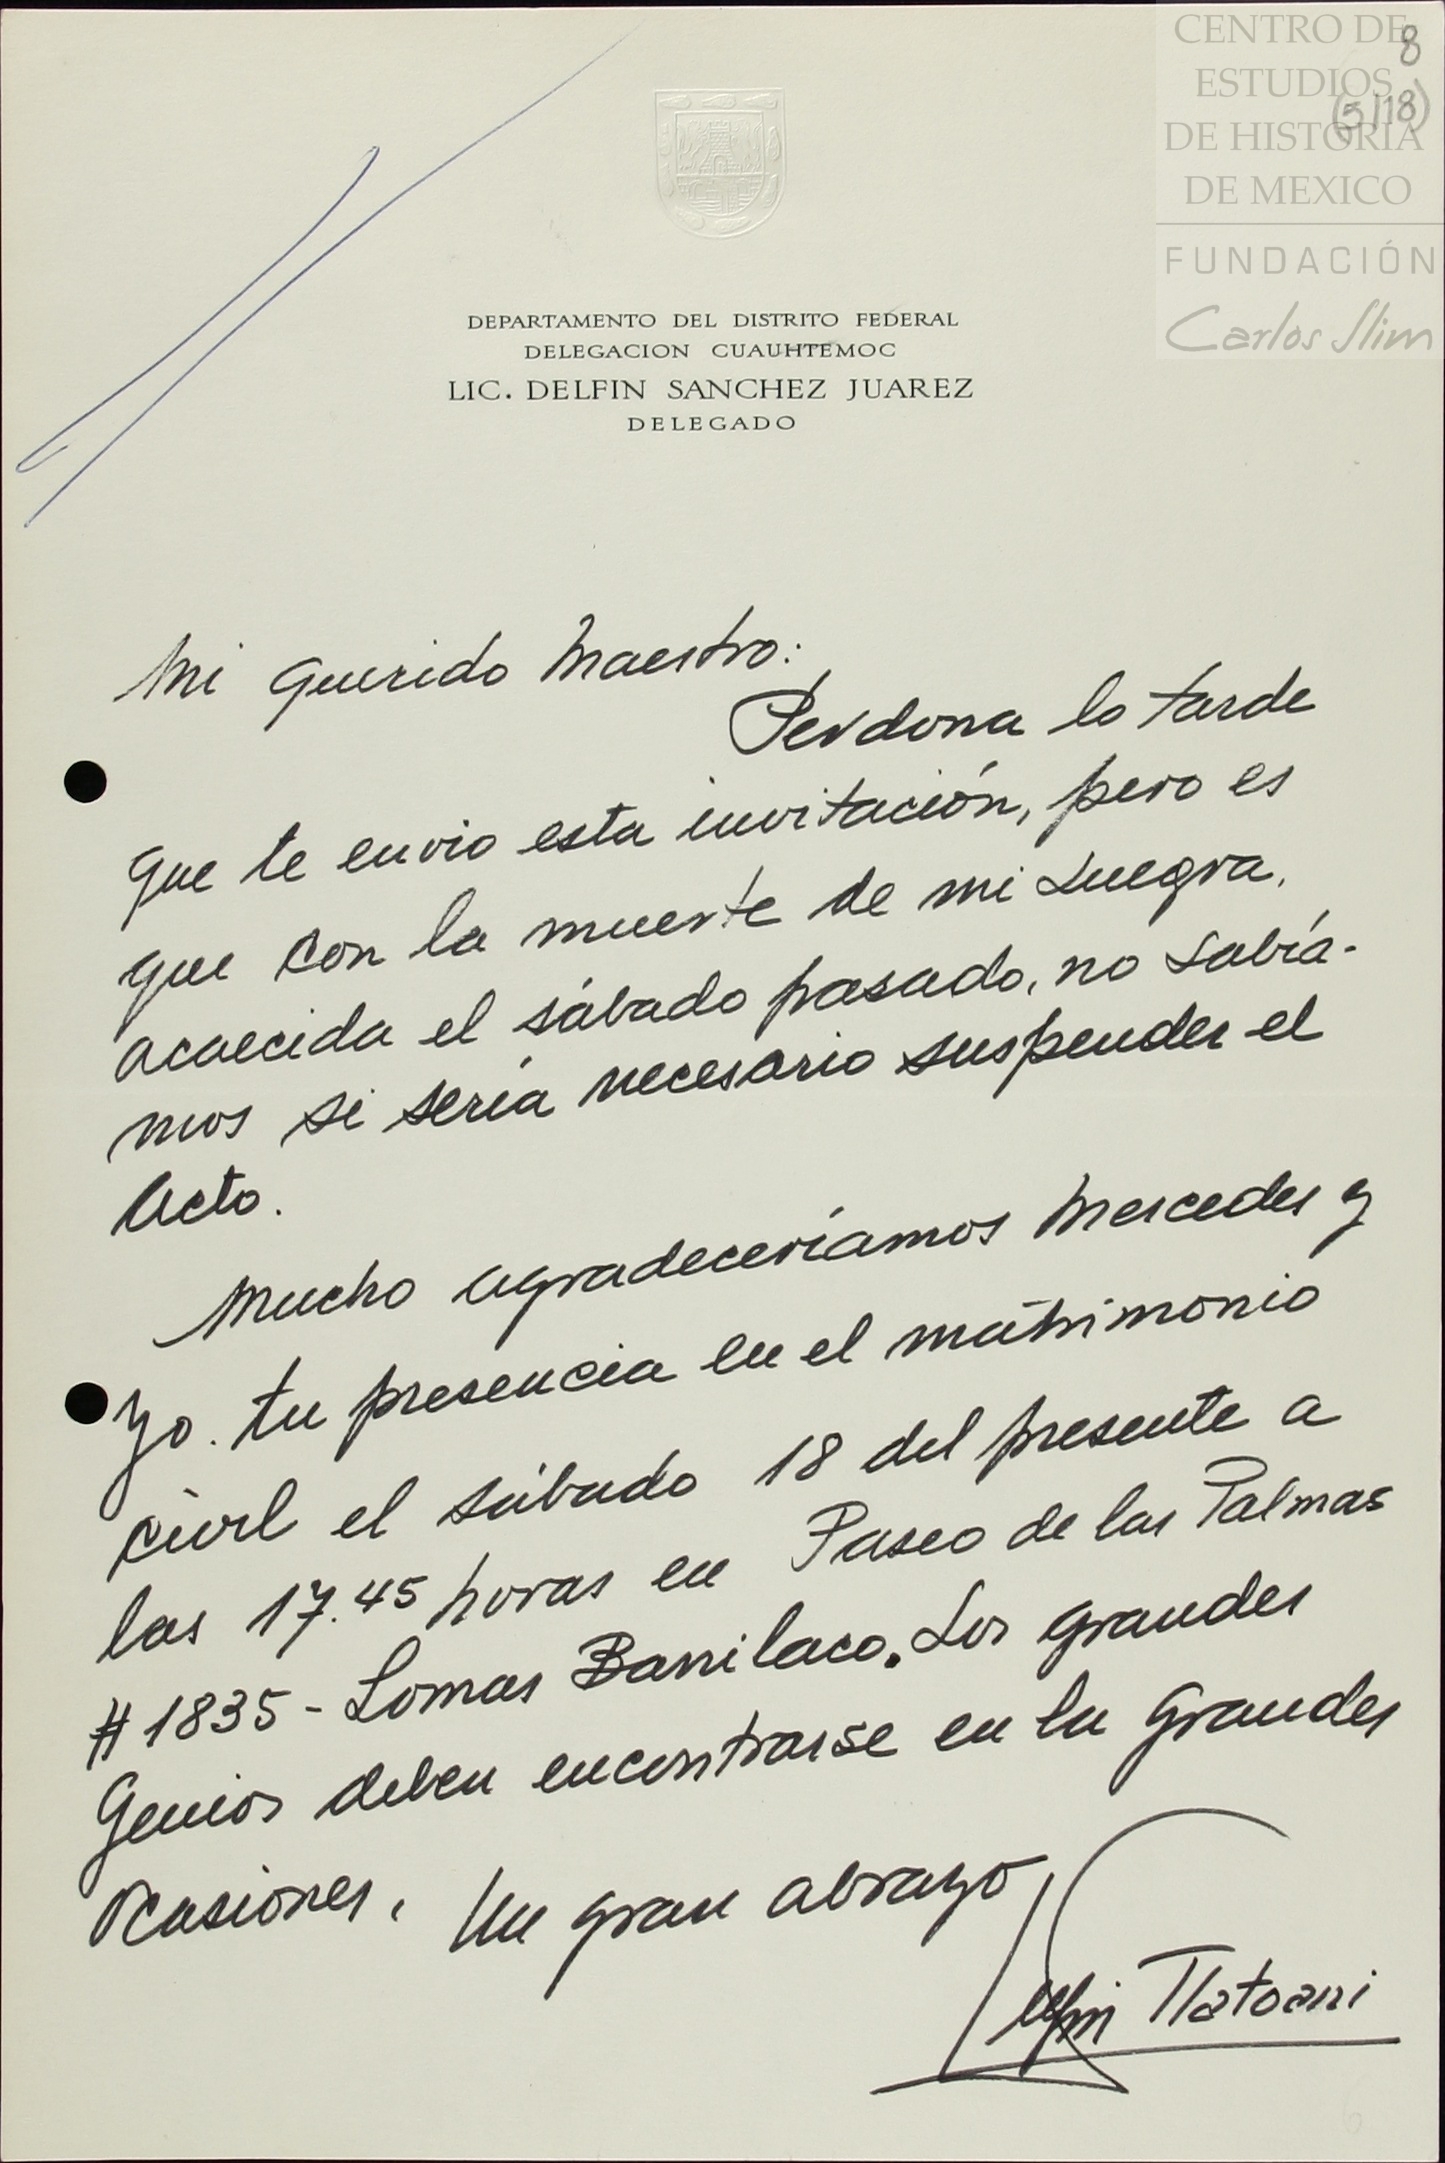 CENTRO DE
ESTUDIOS
DE HISTORIA
DE MEXICO
FUNDACIÓN
Carlos Slim
8
(5/18)
DEPARTAMENTO DEL DISTRITO FEDERAL
DELEGACION CUAUHTEMOC
LIC. DELFIN SANCHEZ JUAREZ
DELEGADO
Mi querido Maestro:
Perdona lo tarde
que te envio esta invitación, pero es
que con la muerte de mi suegra,
acaecida el sábado pasado, no sabía-
mos si sería necesario suspender el
Acto.
Mucho agradeceríamos Mercedes y
Yo. tu presencia en el matrimonio
civil el sábado 18 del presente a
las 17.45 horas en Paseo de las Palmas
#1835 - Lomas Barrilaco. Los grandes
Genios deben encontrarse en la Grandes
Ocasiones. Un gran abrazo
Delfin Tlatoani